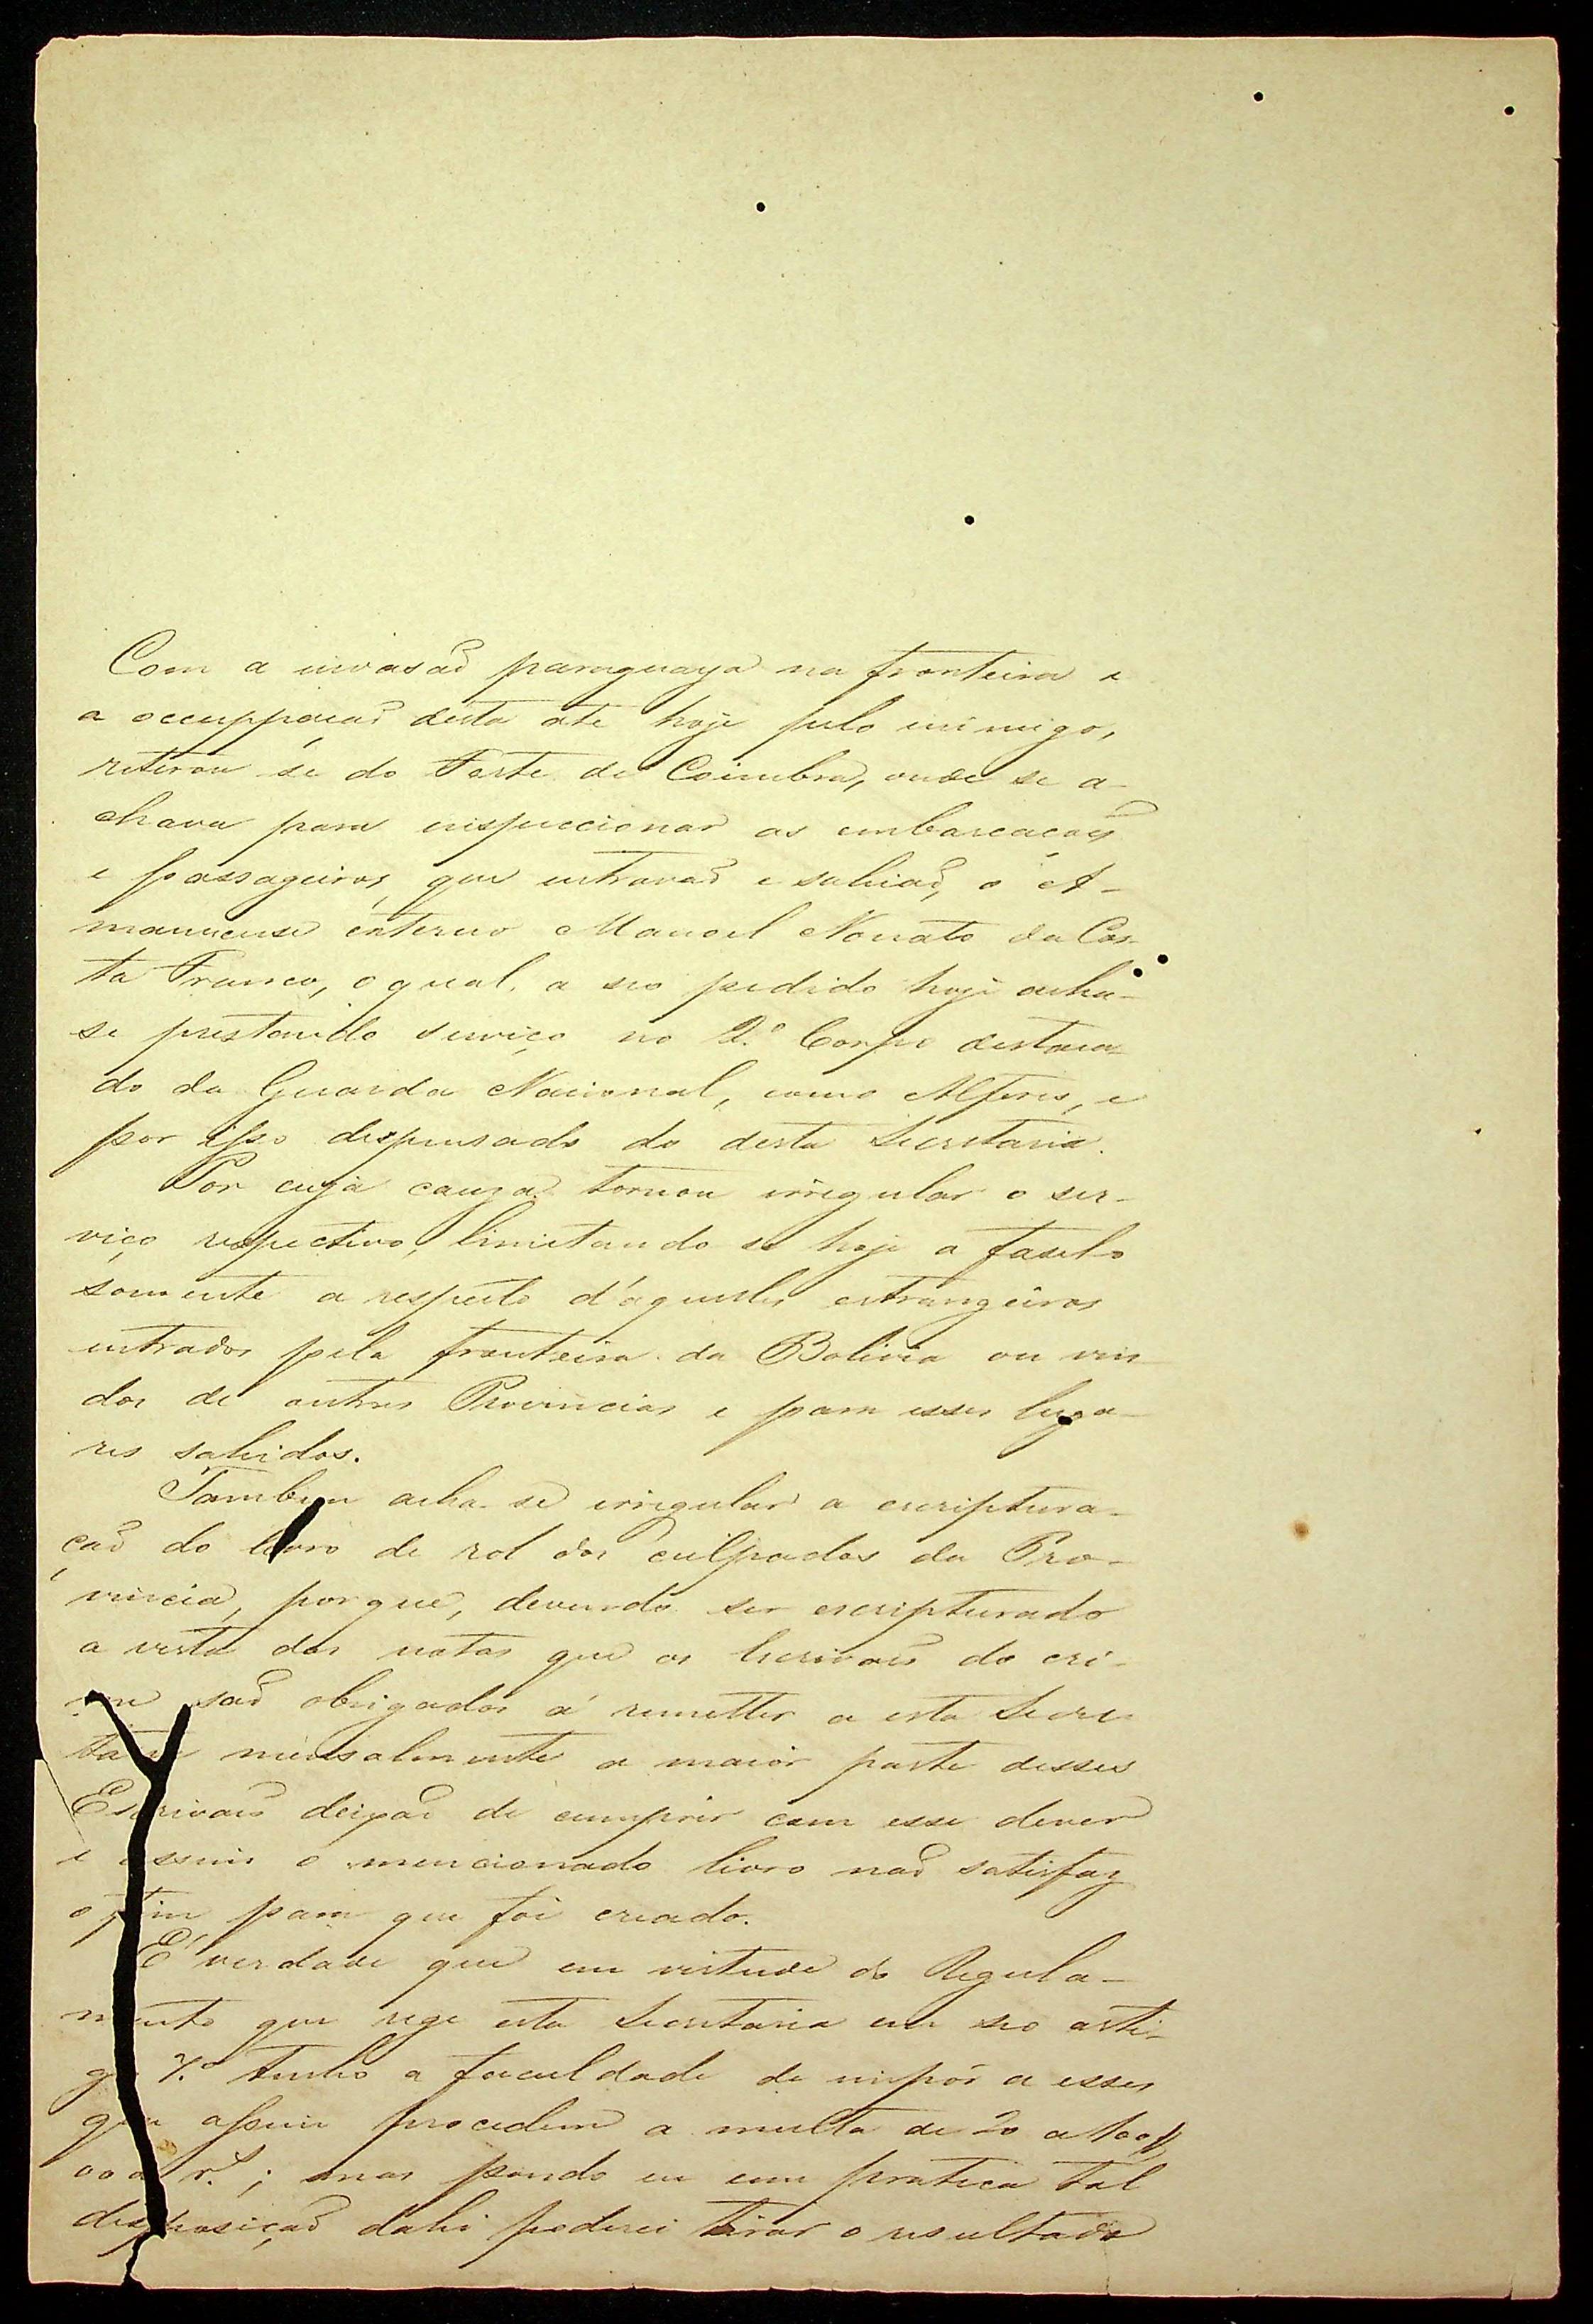 Com a invasaõ paraguaya na fronteira e
a occuppaçaõ desta até hoje pelo inimigo,
retirou-se do Forte de Coimbra, onde se a-
chava para inspeccionar as embarcaçoẽs
e passageiros, que entravaõ e sahiaõ, o A-
manuense interino Manoel Nonato da Cos-
ta Franco, o qual, a seo pedido hoje acha-
se prestando serviço no 2.º Corpo destaca-
do da Guarda Nacional, como Alferes, e
por isso dispensado do desta Secretaria.
Por cuja cauza tornou irregular o ser-
viço respectivo, limitando se hoje a fasel-o
somente a respeito d'aquelles estrangeiros
entrados pela fronteira da Bolivia ou vin-
dos de outras Provincias e para esses luga-
res sahidos.
Tambem acha-se irregular a escriptura-
çaõ do livro de rol dos culpados da Pro-
vincia, porque, devendo ser escripturado
a vista das notas que os Escrivaẽs do cri-
me saõ obrigados á remetter a esta Secre-
taria mensalmente a maior parte desses
Escrivaẽs deixaõ de cumprir com esse dever
e assim o mencionado livro naõ satisfaz
o fim para que foi creado.
É verdade que em virtude do Regula-
mento que rege esta Secretaria em seo arti-
go 7.º tenho a faculdade de impôr a esses
que assim procedem a multa de 20 a 100$
000 r.s; mas pondo eu em pratica tal
disposiçaõ dahi poderei tirar o resultado